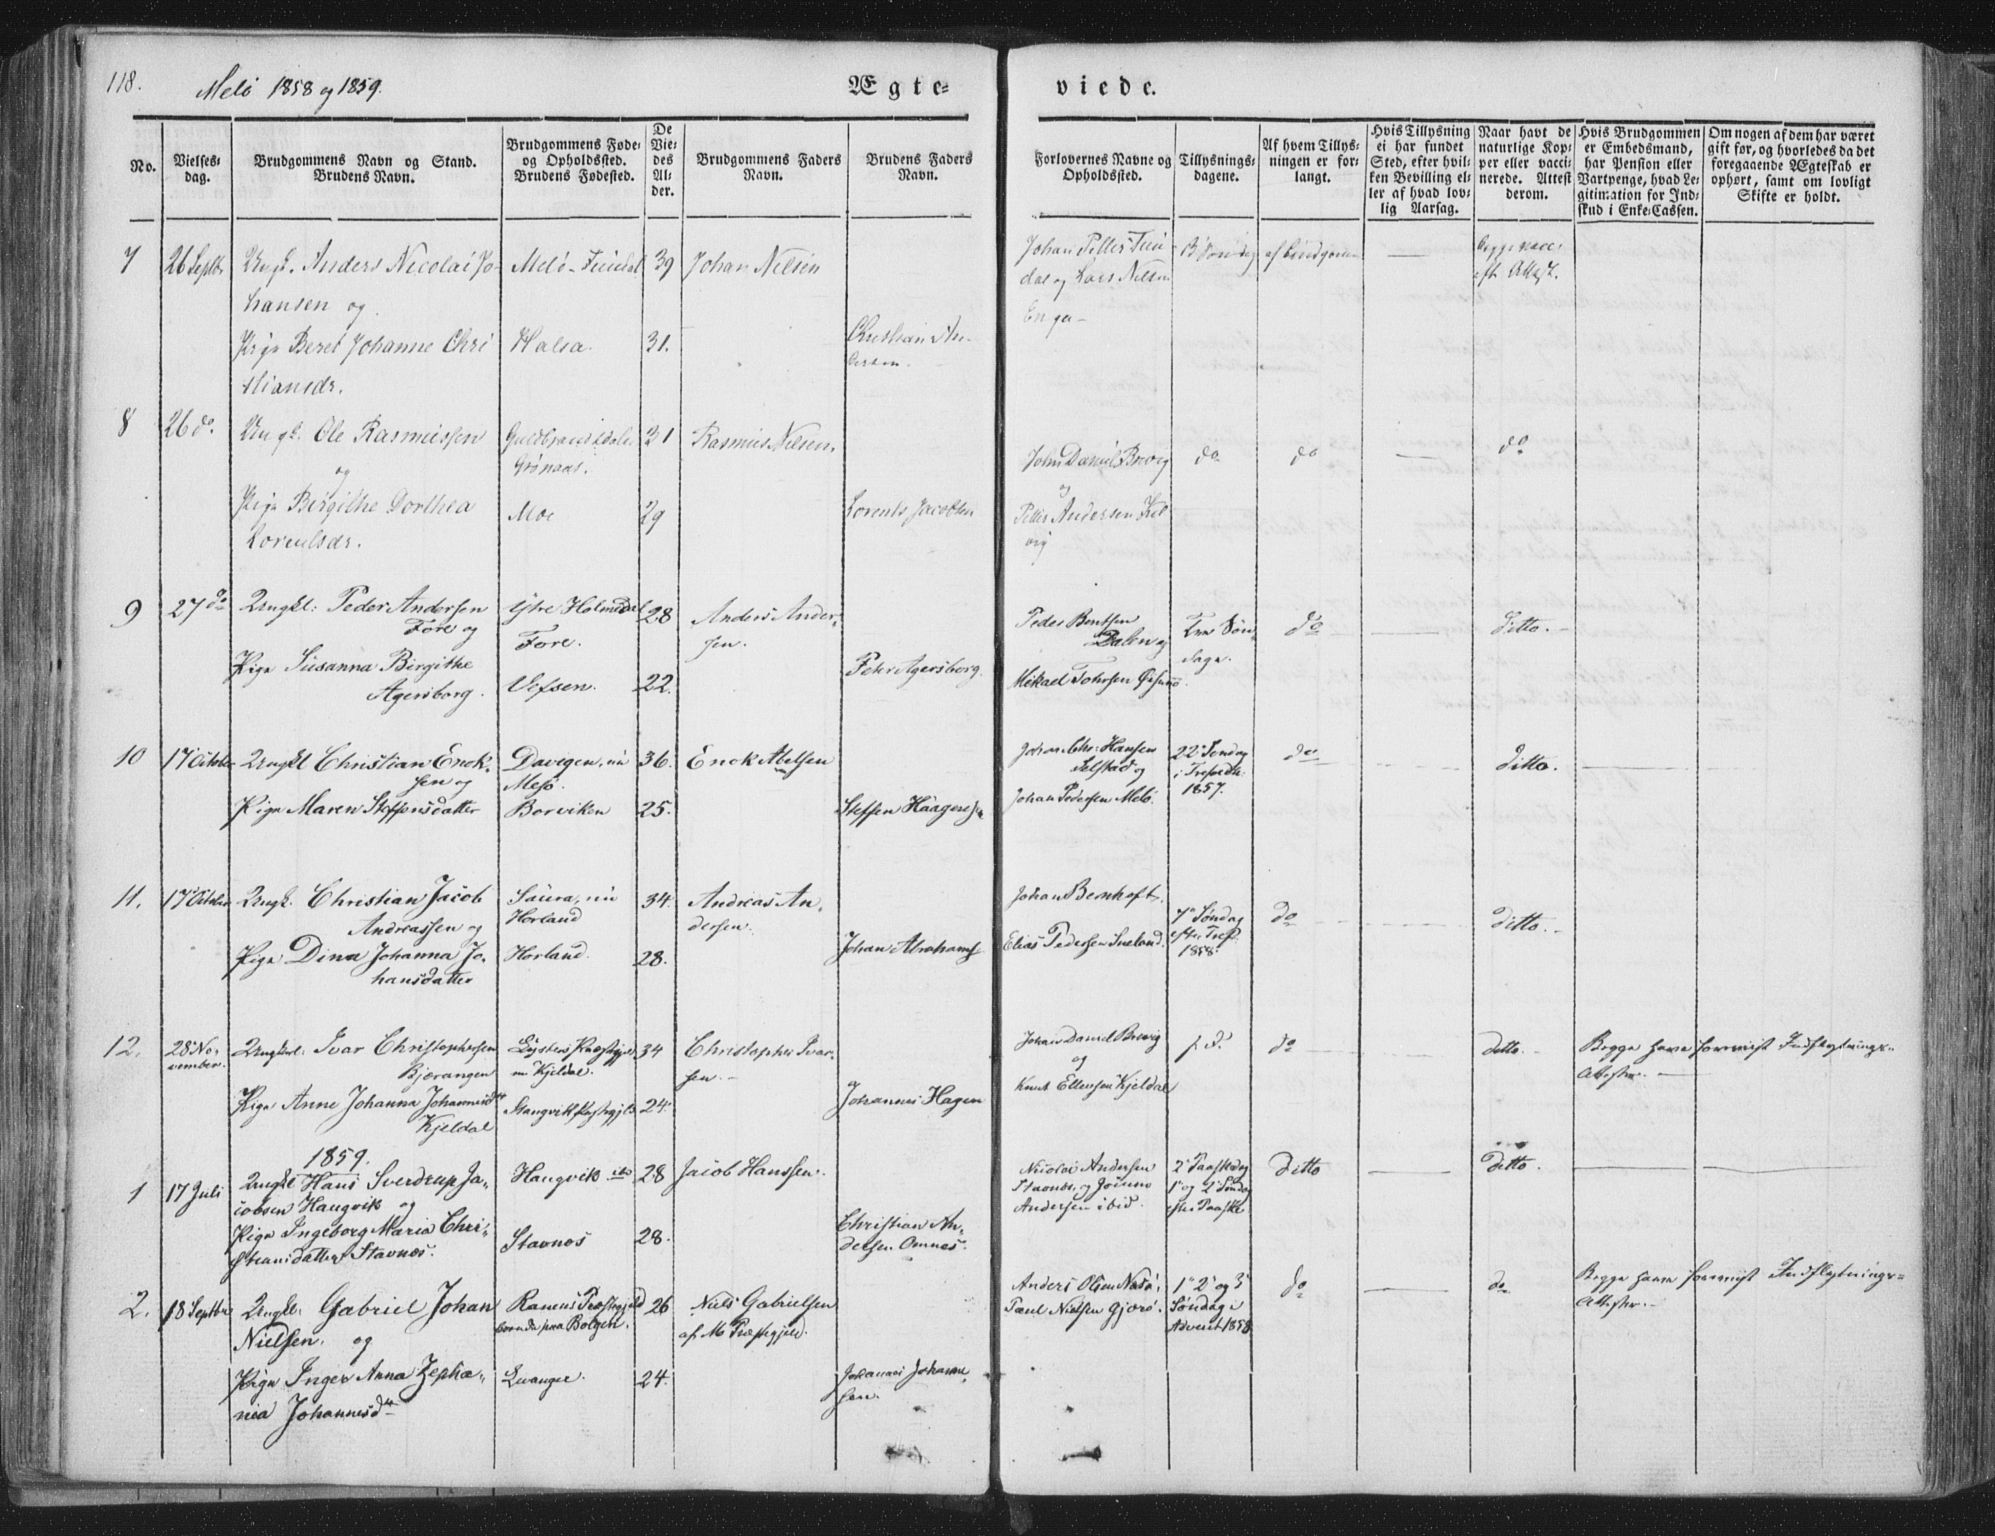 118.
Melö 1858 og 1859.
Ægte-
viede.
No.
Vielses-
dag.
Brudgommens Navn og Stand.
Brudens Navn.
Brudgommens Føde-
og Opholdssted.
Brudens Fødested.
De
Vie-
des
Al-
der.
Brudgommens Faders
Navn.
Brudens Faders
Navn.
Forlovernes Navne og
Opholdssted.
Tillysnings-
dagene.
Af hvem Tillys-
ningen er for-
langt.
Hvis Tillysning
ei har fundet
Sted, efter hvil-
ken Bevilling el-
ler af hvad lov-
lig Aarsag.
Naar havt de
naturlige Kop-
per eller vacci-
nerede. Attest
derom.
Hvis Brudgommen
er Embedsmand,
har Pension eller
Vartpenge, hvad Le-
gitimation for Ind-
skud i Enke-Cassen.
Om nogen af dem har været
gift før, og hvorledes da det
foregaaende Ægteskab er
ophørt, samt om lovligt
Skifte er holdt.
7
26 Septbr
Ungk. Anders Nicolai Jo-
hansen og
Melö
39
Johan Nelsen
Johan
dal og Lars Nelsen
Enga
Pige Beret Johanne Chri
stiansdr.
Halsa
31.
Christian An-
dersen.
8
26 do
Ungk. Ole Rasmussen
og
Grönaas.
31
Rasmus Nelsen.
do
do
do
Pige Birgithe Dorthea
Lorentsdr.
Moe
29
Lorents Jacobsen
og
9
27 do
Ungkl: Peder Andersen
Fore og
Ytre Holmsdal
Fore.
28
Anders Ander-
sen.
Peder Bentsen
Dalen og
Søn-
dage.
do
ditto.
Pige Susanna Birgithe
Agersborg.
Vefsen.
22.
Peter Agersborg.
Mikael
10
17 October
Ungkl Christian Enok-
sen og
Davigen, nu
Mesö.
36.
Enok Abelsen
Johan Chr: Hansen
Selstad og
22 Søndag
1857.
do
ditto.
Pige Maren Steffensdatter
Borviken
25.
Steffen Haagensen
Johan Pedersen Melö.
11.
17 October
Ungk. Christian Jacob
Andreassen og
Saura, nu
Horland
34.
Andreas An-
dersen.
Johan Bernhoft.
7 Søndag
efter Tref.
1858.
do
ditto.
Pige Dina Johanna Jo-
hansdatter
Horland.
28.
Johan Abrahams
Elias Pedersen
12.
28 No-
vember.
Ungkrl: Ivar Christophersen
Bjærangen
nu Kjeldal.
34
Christopher Ivar-
sen.
Johan Daniel Brevig
og
do
ditto.
Begge have forevist Indflytnings-
Attester.
Pige Anne Johanna Johannesdtr
Kjeldal
Stangvik Præstegjeld
24.
Johannes Hagen
Knut Ellensen Kjeldal
1859.
1
17 Juli
Ungkl Hans Sverdrup Ja-
cobsen Haugvik og
Haugvik
28
Jacob Hanssen.
Nicolai Andersen
Stavnes og
Andersen ibid.
2 Paaskedag
1 og 2 Søndag
efter Paaske
ditto
ditto.
Pige Ingeborg Maria Chri-
stiansdatter Stavnes.
Stavnes
28.
Christian An-
dersen Omnes.
2.
18 Septbr
Ungkl: Gabriel Johan
Nielsen. og
Ranens Præstegjeld
boende paa Bolgen.
26
Niels Gabrielsen
af M Præstegjeld.
Anders Olsen
Paul Nielsen Gjærö.
1 2 og 3
Søndag i
Advent 1858
do
do
Begge have forevist Indflytnings-
Attester.
Pige Inger Anna Zepha-
nia Johannesdtr
24.
Johannes Johanne-
sen.